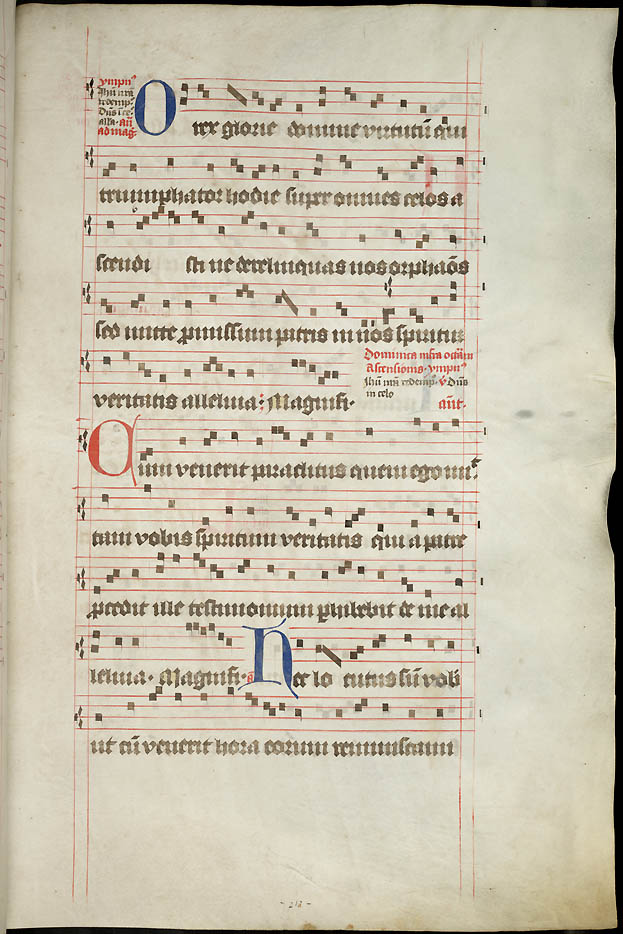 ympn⁹
Jhū nrā
redemp̄.
Dn̄s ī ce-
lo. añ.
ad mag̃.
O rex glorie domine virtutū qui
triumphator hodie super omnes celos a
scendi sti ne derelinquas nos orphaōs
sed mitte promissum patris in nos spiritum
Dominica infra octāu
Ascensionis. ympn⁹
Jhū nrā redemp̄. v̄ Dn̄s
in celo
añt.
veritatis alleluia. Magnifi.
Cum venerit paraclitus quem ego mi
tam vobis spiritum veritatis qui a patre
procedit ille testimonium perhibebit de me al
leluia. Magnifi. Hec lo cutus sū vobi
ut cū venerit hora eorum reminiscami
- 212 -